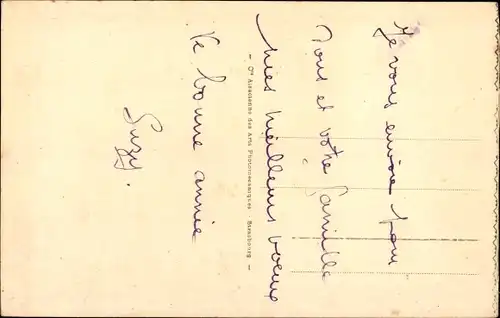 Je vous envoie pour
Vous et votre famille
Mes meilleurs voeux
de bonne année
Suzy.
- Cie Alsacienne des Arts Photomécaniques - Strasbourg -